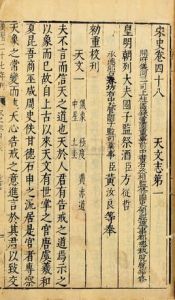 宋史卷四十八　天文志第一
開府儀同三司上柱國錄軍國重事前中書右丞相監修國史領經筵事都總裁臣脫脫等奉
皇明朝列大夫國子監祭酒臣方從哲
承德郎右春坊右中允管國子監司業事臣黃汝良等奉
勅重校刊
天文一　儀象　極度　黃赤道　中星　土圭
夫不言而信天之道也天於人君有告戒之道焉示之
以象而已故自上古以來天文有世掌之官唐虞羲和
夏昆吾商巫咸周史佚甘德石申之流居是官者專察
天象之常變而述天心告戒之意進言於其君以致交